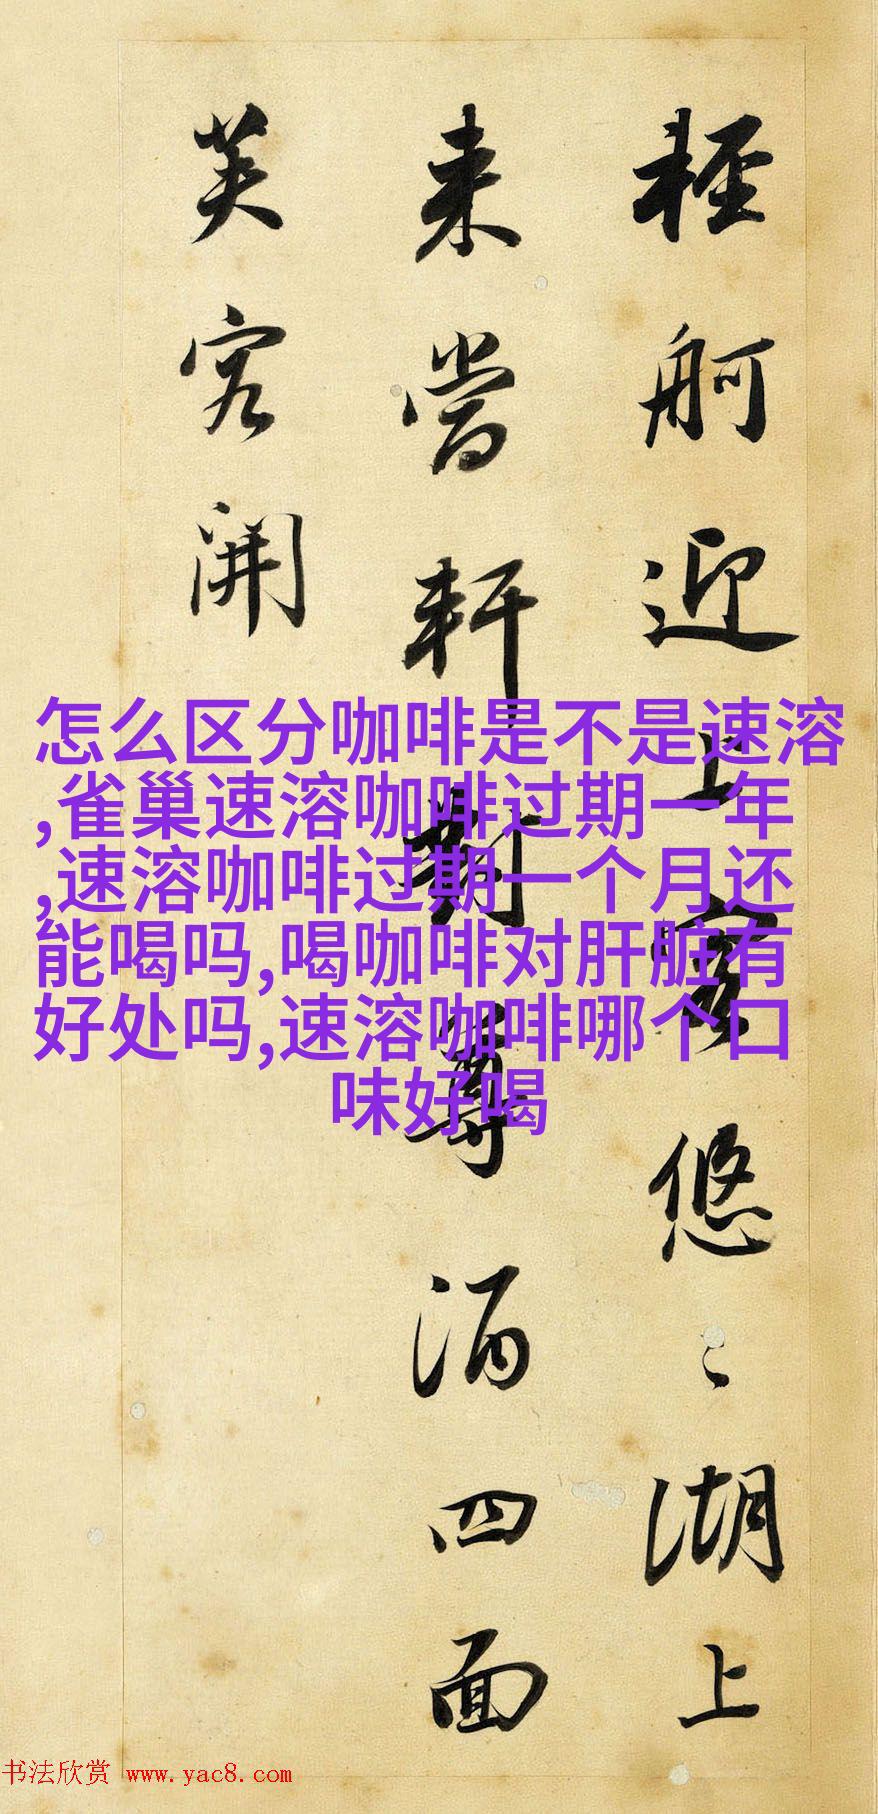 轻舸迎上客悠悠湖上
来当轩对尊酒四面
芙容开
怎么区分咖啡是不是速溶
,雀巢速溶咖啡过期一年
,速溶咖啡过期一个月还
能喝吗,喝咖啡对肝脏有
好处吗,速溶咖啡哪个口
味好喝
书法欣赏 www.yac8.com